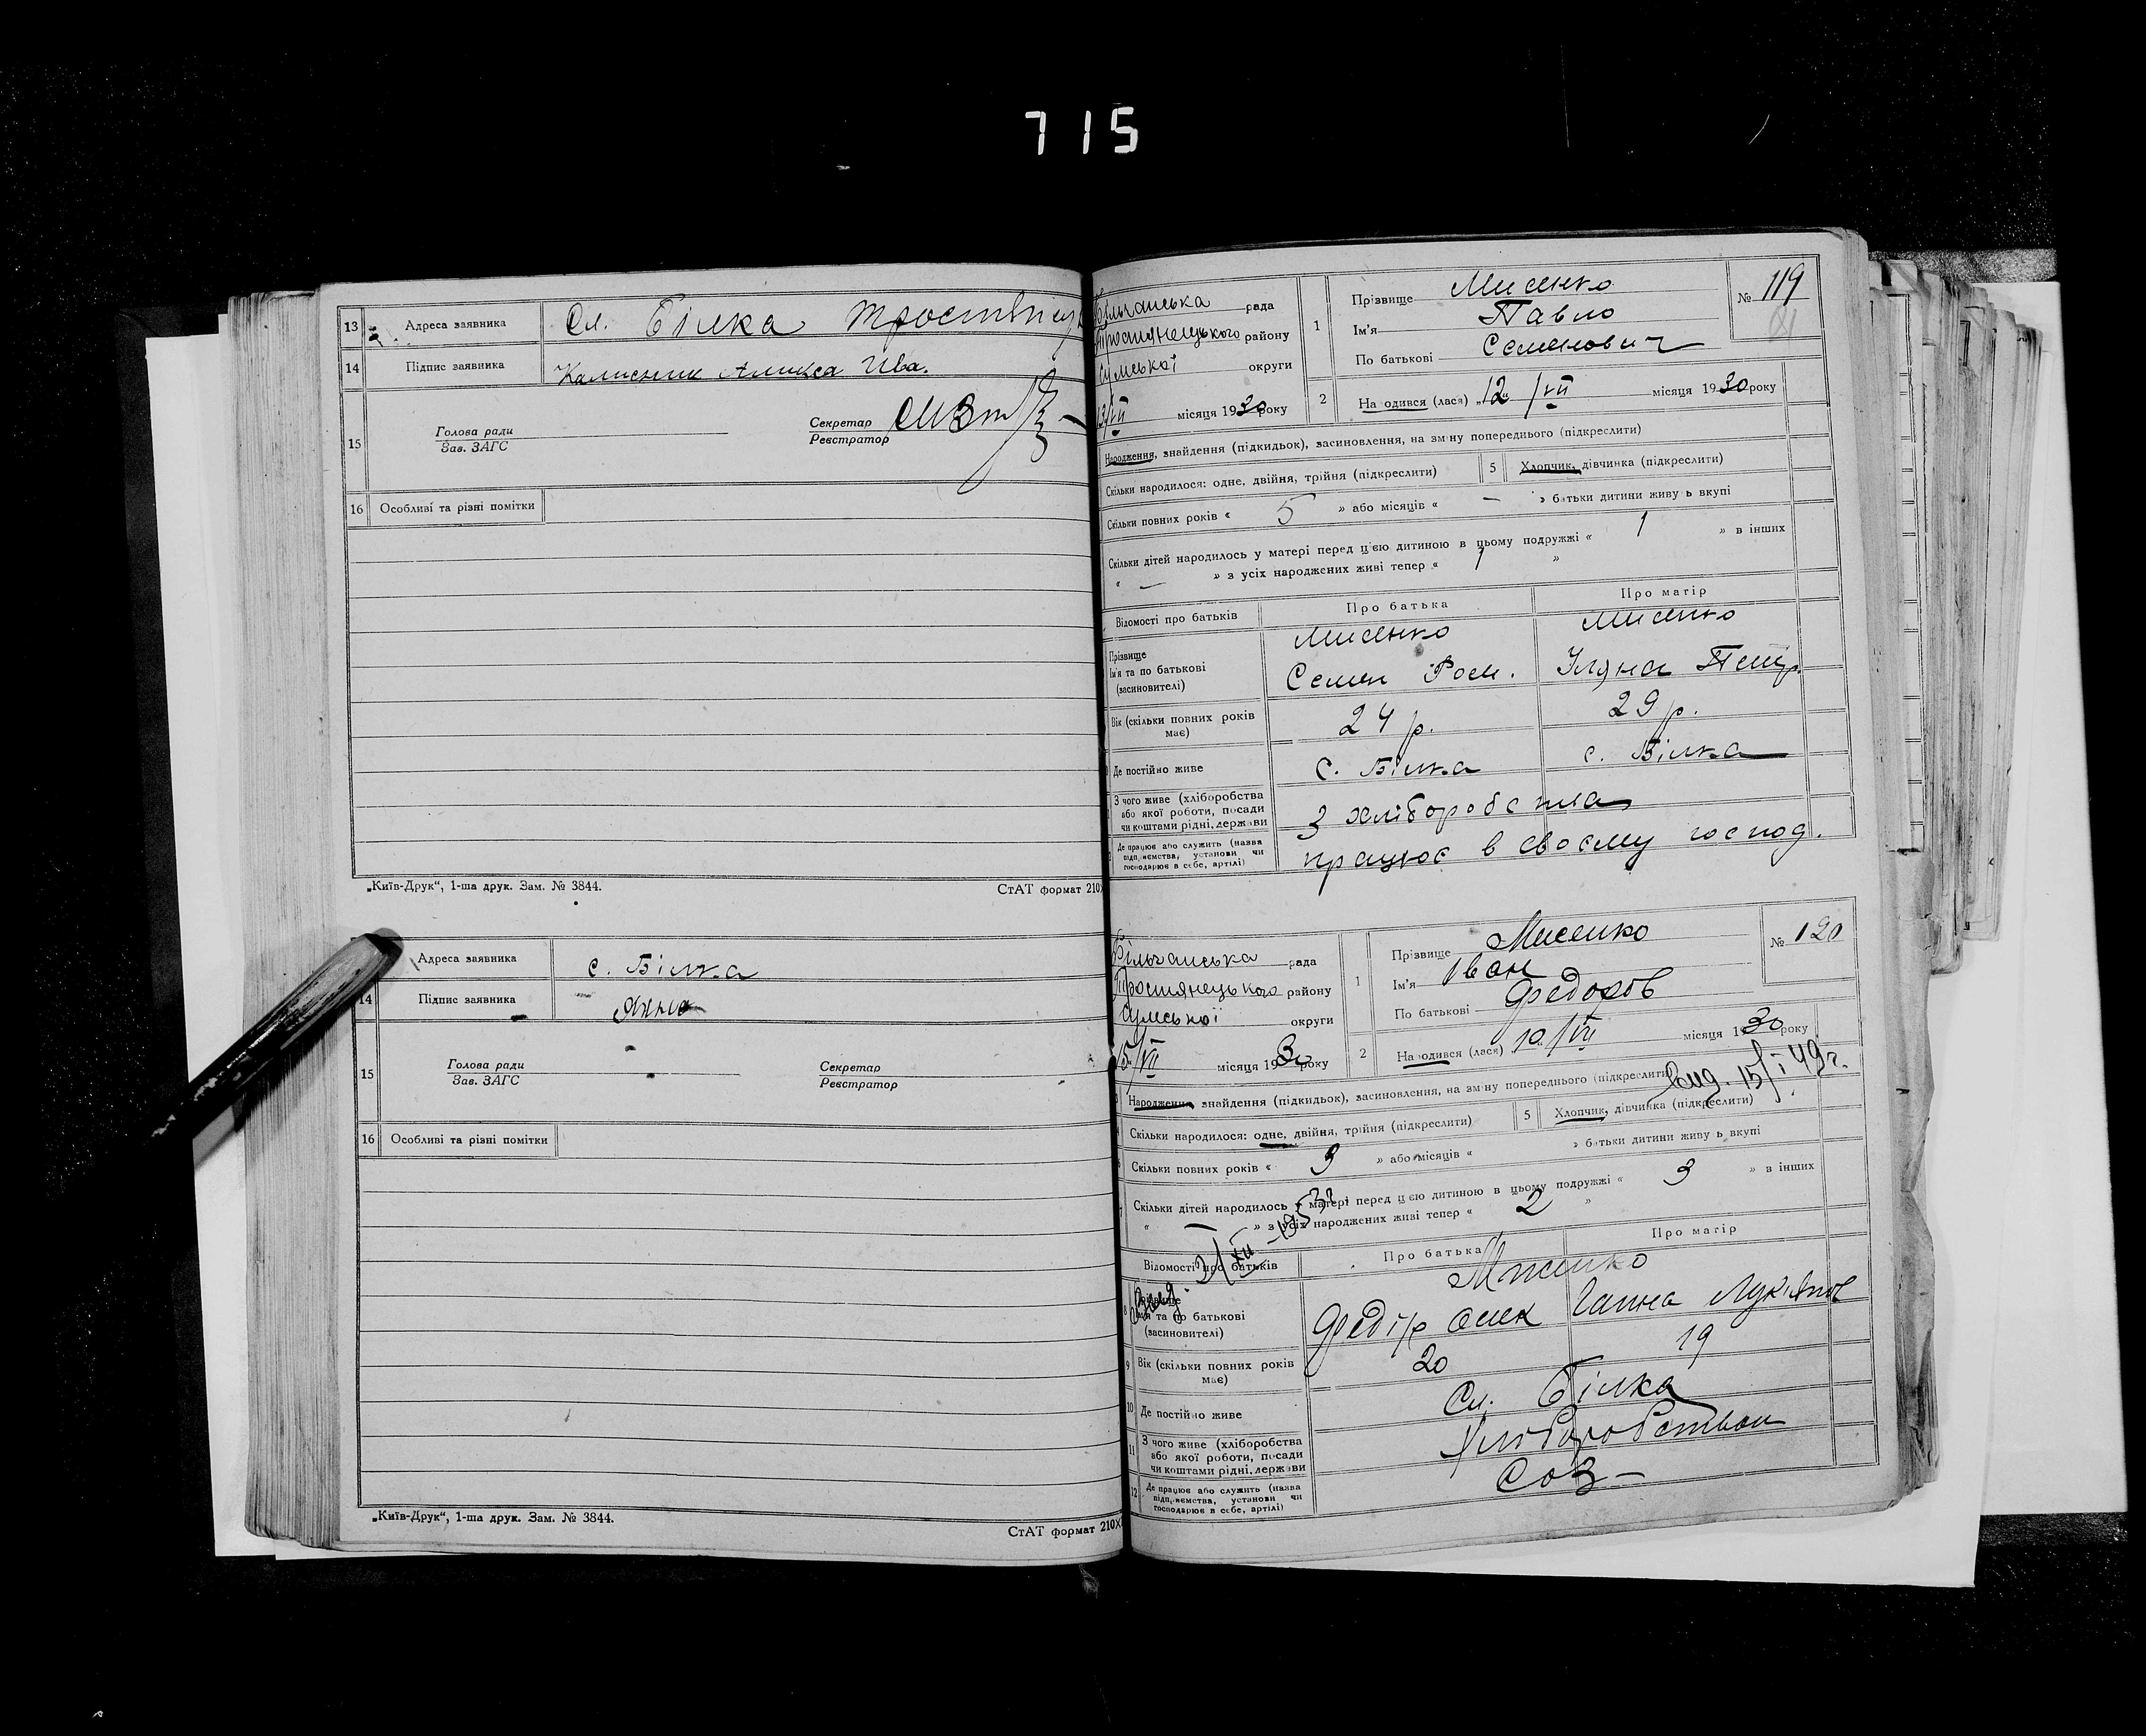 715
13 Адреса заявника Сл. Білка
14 Підпис заявника Калисник Аликса Ива.
15 Голова ради Секретар
Зав. ЗАГС Реєстратор
16 Особливі та різні помітки
„Київ-Друк“, 1-ша друк. Зам. № 3844. СтАТ формат 210
Адреса заявника с. Білка
14 Підпис заявника
15 Голова ради Секретар
Зав. ЗАГС Реєстратор
16 Особливі та різні помітки
„Київ-Друк“, 1-ша друк. Зам. № 3844. СтАТ формат 210X
Більчанська рада
Тростянецького району
Сумської округи
13/VII місяця 1930 року
1 Прізвище Мисенко
Ім'я Павло
По батькові Семенович
№ 119
2 Народився (лася) „12 /VII місяця 1930 року
Народження, знайдення (підкидьок), засиновлення, на зміну попереднього (підкреслити)
Скільки народилося: одне, двійня, трійня (підкреслити) 5 Хлопчик, дівчинка (підкреслити)
Скільки повних років « 5 » або місяців « — » батьки дитини живуть вкупі
Скільки дітей народилось у матері перед цією дитиною в цьому подружжі « 1 » в інших
« — » з усіх народжених живі тепер « 1 »
Відомості про батьків Про батька Про матір
Прізвище Мисенко Мисенко
Ім'я та по батькові Семен Ром. Уляна Петр.
(засиновителі)
Вік (скільки повних років має) 24 р. 29 р.
Де постійно живе с. Білка с. Білка
З чого живе (хліборобства З хліборобства
або якої роботи, посади
чи коштами рідні, держави
Де працює або служить (назва працює в своєму господ.
підприємства, установи чи
господарює в себе, артілі)
Більчанська рада
Тростянецького району
Сумської округи
15/VII місяця 1930 року
1 Прізвище Мисенко
Ім'я Іван
По батькові Федоров
№ 120
2 Народився (лася) 10/VII місяця 1930 року
Выд. 15/I 49 г.
Народження, знайдення (підкидьок), засиновлення, на зміну попереднього (підкреслити)
Скільки народилося: одне, двійня, трійня (підкреслити) 5 Хлопчик, дівчинка (підкреслити)
Скільки повних років « 3 » або місяців « » батьки дитини живуть вкупі
Скільки дітей народилось у матері перед цією дитиною в цьому подружжі « 3 » в інших
« — » з усіх народжених живі тепер « 2 »
Відомості про батьків Про батька Про матір
Прізвище Мисенко
Ім'я та по батькові Федір Ганна Лукіянов
(засиновителі)
9 Вік (скільки повних років має) 20 19
10 Де постійно живе Сл. Білка
11 З чого живе (хліборобства Хліборобством
або якої роботи, посади
чи коштами рідні, держави
12 Де працює або служить (назва СОЗ —
підприємства, установи чи
господарює в себе, артілі)